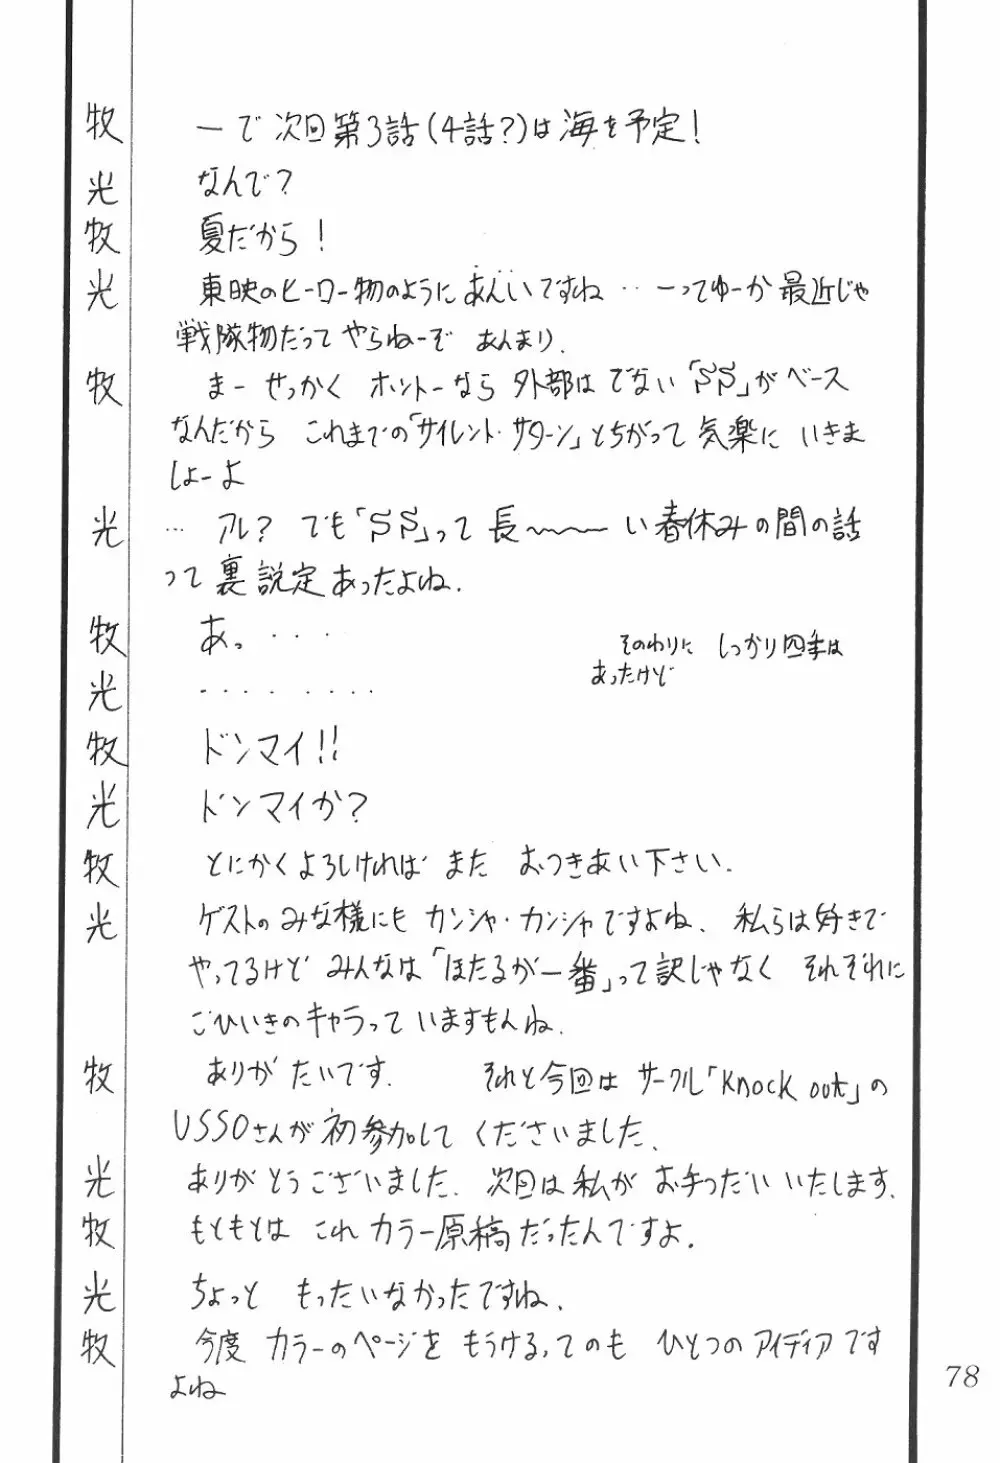 牧 ーで 次回第3話(4話?)は海を予定!
光 なんで?
牧 夏だから!
光 東映のヒーロー物のようにあんいですね‥ーってゆーか最近じゃ
戦隊物だって やらねーぞ あんまり.
牧 まー せっかく ホントーなら 外部はでない「SS」がベース
なんだから これまでの「サイレント・サターン」とちがって 気楽に いきま
しょーよ
光 … アレ? でも「SS」って 長〜〜〜〜い春休みの間の話
って裏説定あったよね.
牧 あっ・・・・
そのわりに しっかり四季は
あったけど
光 ・・・・ ・・・・
牧 ドンマイ!!
光 ドンマイか?
牧 とにかくよろしければ また おつきあい下さい.
光 ゲストのみな様にも カンシャ・カンシャですよね. 私らは好きで
やってるけど みんなは「ほたるが一番」って訳じゃなく それぞれに
ごひいきのキャラって いますもんね.
牧 ありがたいです. それと今回は サークル「Knock out」の
USSOさんが初参加して くださいました.
光 ありがとうございました. 次回は私が お手つだい いたします.
牧 もともとは これ カラー原稿だったんですよ.
光 ちょっと もったいなかったですね.
牧 今度 カラーのページを もうける,てのも ひとつの アイディアです
よね
78